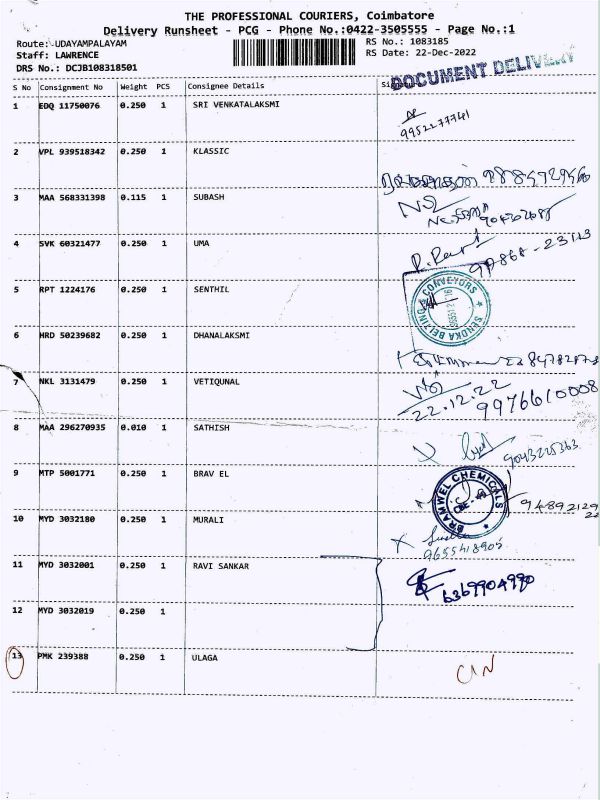 THE PROFESSIONAL COURIERS, Coimbatore
Delivery Runsheet - PCG - Phone No.:0422-3505555 - Page No.:1
Route: UDAYAMPALAYAM
Staff: LAWRENCE
DRS No.: DCJB108318501
RS No.: 1083185
RS Date: 22-Dec-2022
DOCUMENT DELIVERY
S No Consignment No Weight PCS Consignee Details
1 EDQ 11750076 0.250 1 SRI VENKATALAKSMI
9952277741
2 VPL 939518342 0.250 1 KLASSIC
3 MAA 568331398 0.115 1 SUBASH
4 SVK 60321477 0.250 1 UMA
97868-23113
5 RPT 1224176 0.250 1 SENTHIL
SENDKA BEIJING & CONVEYORS
6 HRD 50239682 0.250 1 DHANALAKSMI
7 NKL 3131479 0.250 1 VETIQUNAL
22.12.22 9976610008
8 MAA 296270935 0.010 1 SATHISH
9043225363
9 MTP 5001771 0.250 1 BRAV EL
BRAMWEL CHEMICALS
10 MYD 3032180 0.250 1 MURALI
9655418905
11 MYD 3032001 0.250 1 RAVI SANKAR
6369904990
12 MYD 3032019 0.250 1
13 PMK 239388 0.250 1 ULAGA